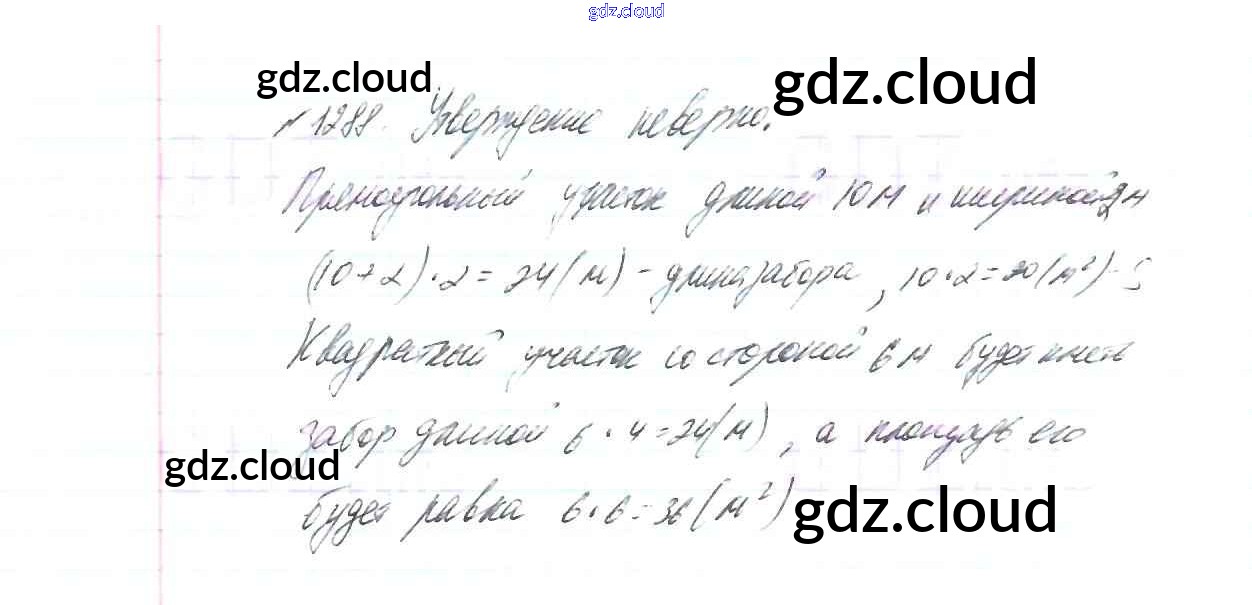 gdz.cloud
gdz.cloud
gdz.cloud
№1288. Утверждение неверно.
Прямоугольный участок длиной 10 м и шириной 2 м
(10+2)·2=24(м) - длина забора, 10·2=20(м²) - S
Квадратный участок со стороной 6 м будет иметь
забор длиной 6·4=24(м), а площадь его
gdz.cloud
будет равна 6·6=36(м²)
gdz.cloud